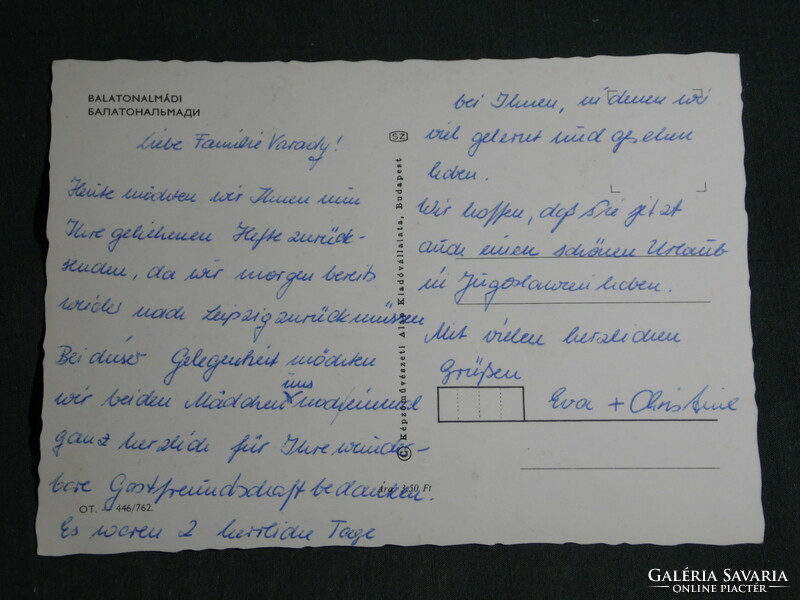 BALATONALMÁDI
БАЛАТОНАЛЬМАДИ
Liebe Familie Varady!
Heute möchten wir Ihnen nun
Ihre geliehenen Hefte zurück-
senden, da wir morgen bereits
wieder nach Leipzig zurückmüssen
Bei dieser Gelegenheit möchten
uns
wir beiden Mädchen noch einmal
ganz herzlich für Ihre wunder-
bare Gastfreundschaft bedanken.
Es waren 2 herrliche Tage
OT. - 446/762
SZ
© Képzőművészeti Alap Kiadóvállalata, Budapest
bei Ihnen, in denen wir
viel gelernt und gesehen
haben.
Wir hoffen, daß Sie jetzt
auch einen schönen Urlaub
in Jugoslawien haben.
Mit vielen herzlichen
Grüßen
Eva + Christine
50 Ft
GALÉRIA SAVARIA
ONLINE PIACTÉR